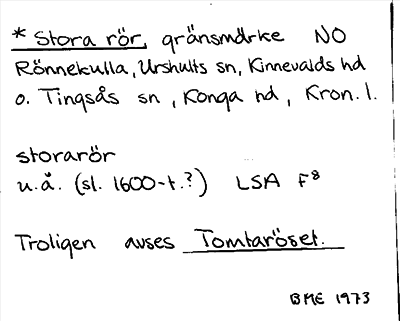 * Stora rör, gränsmärke NO
Rönnekulla, Urshults sn, Kinnevalds hd
o. Tingsås sn, Konga hd, Kron. l.
storarör
u.å. (sl. 1600-t.?) LSA F8
Troligen avses Tomtaröset.
BME 1973